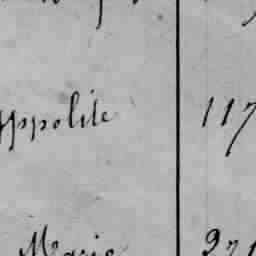 yppolite 117
Marie 271